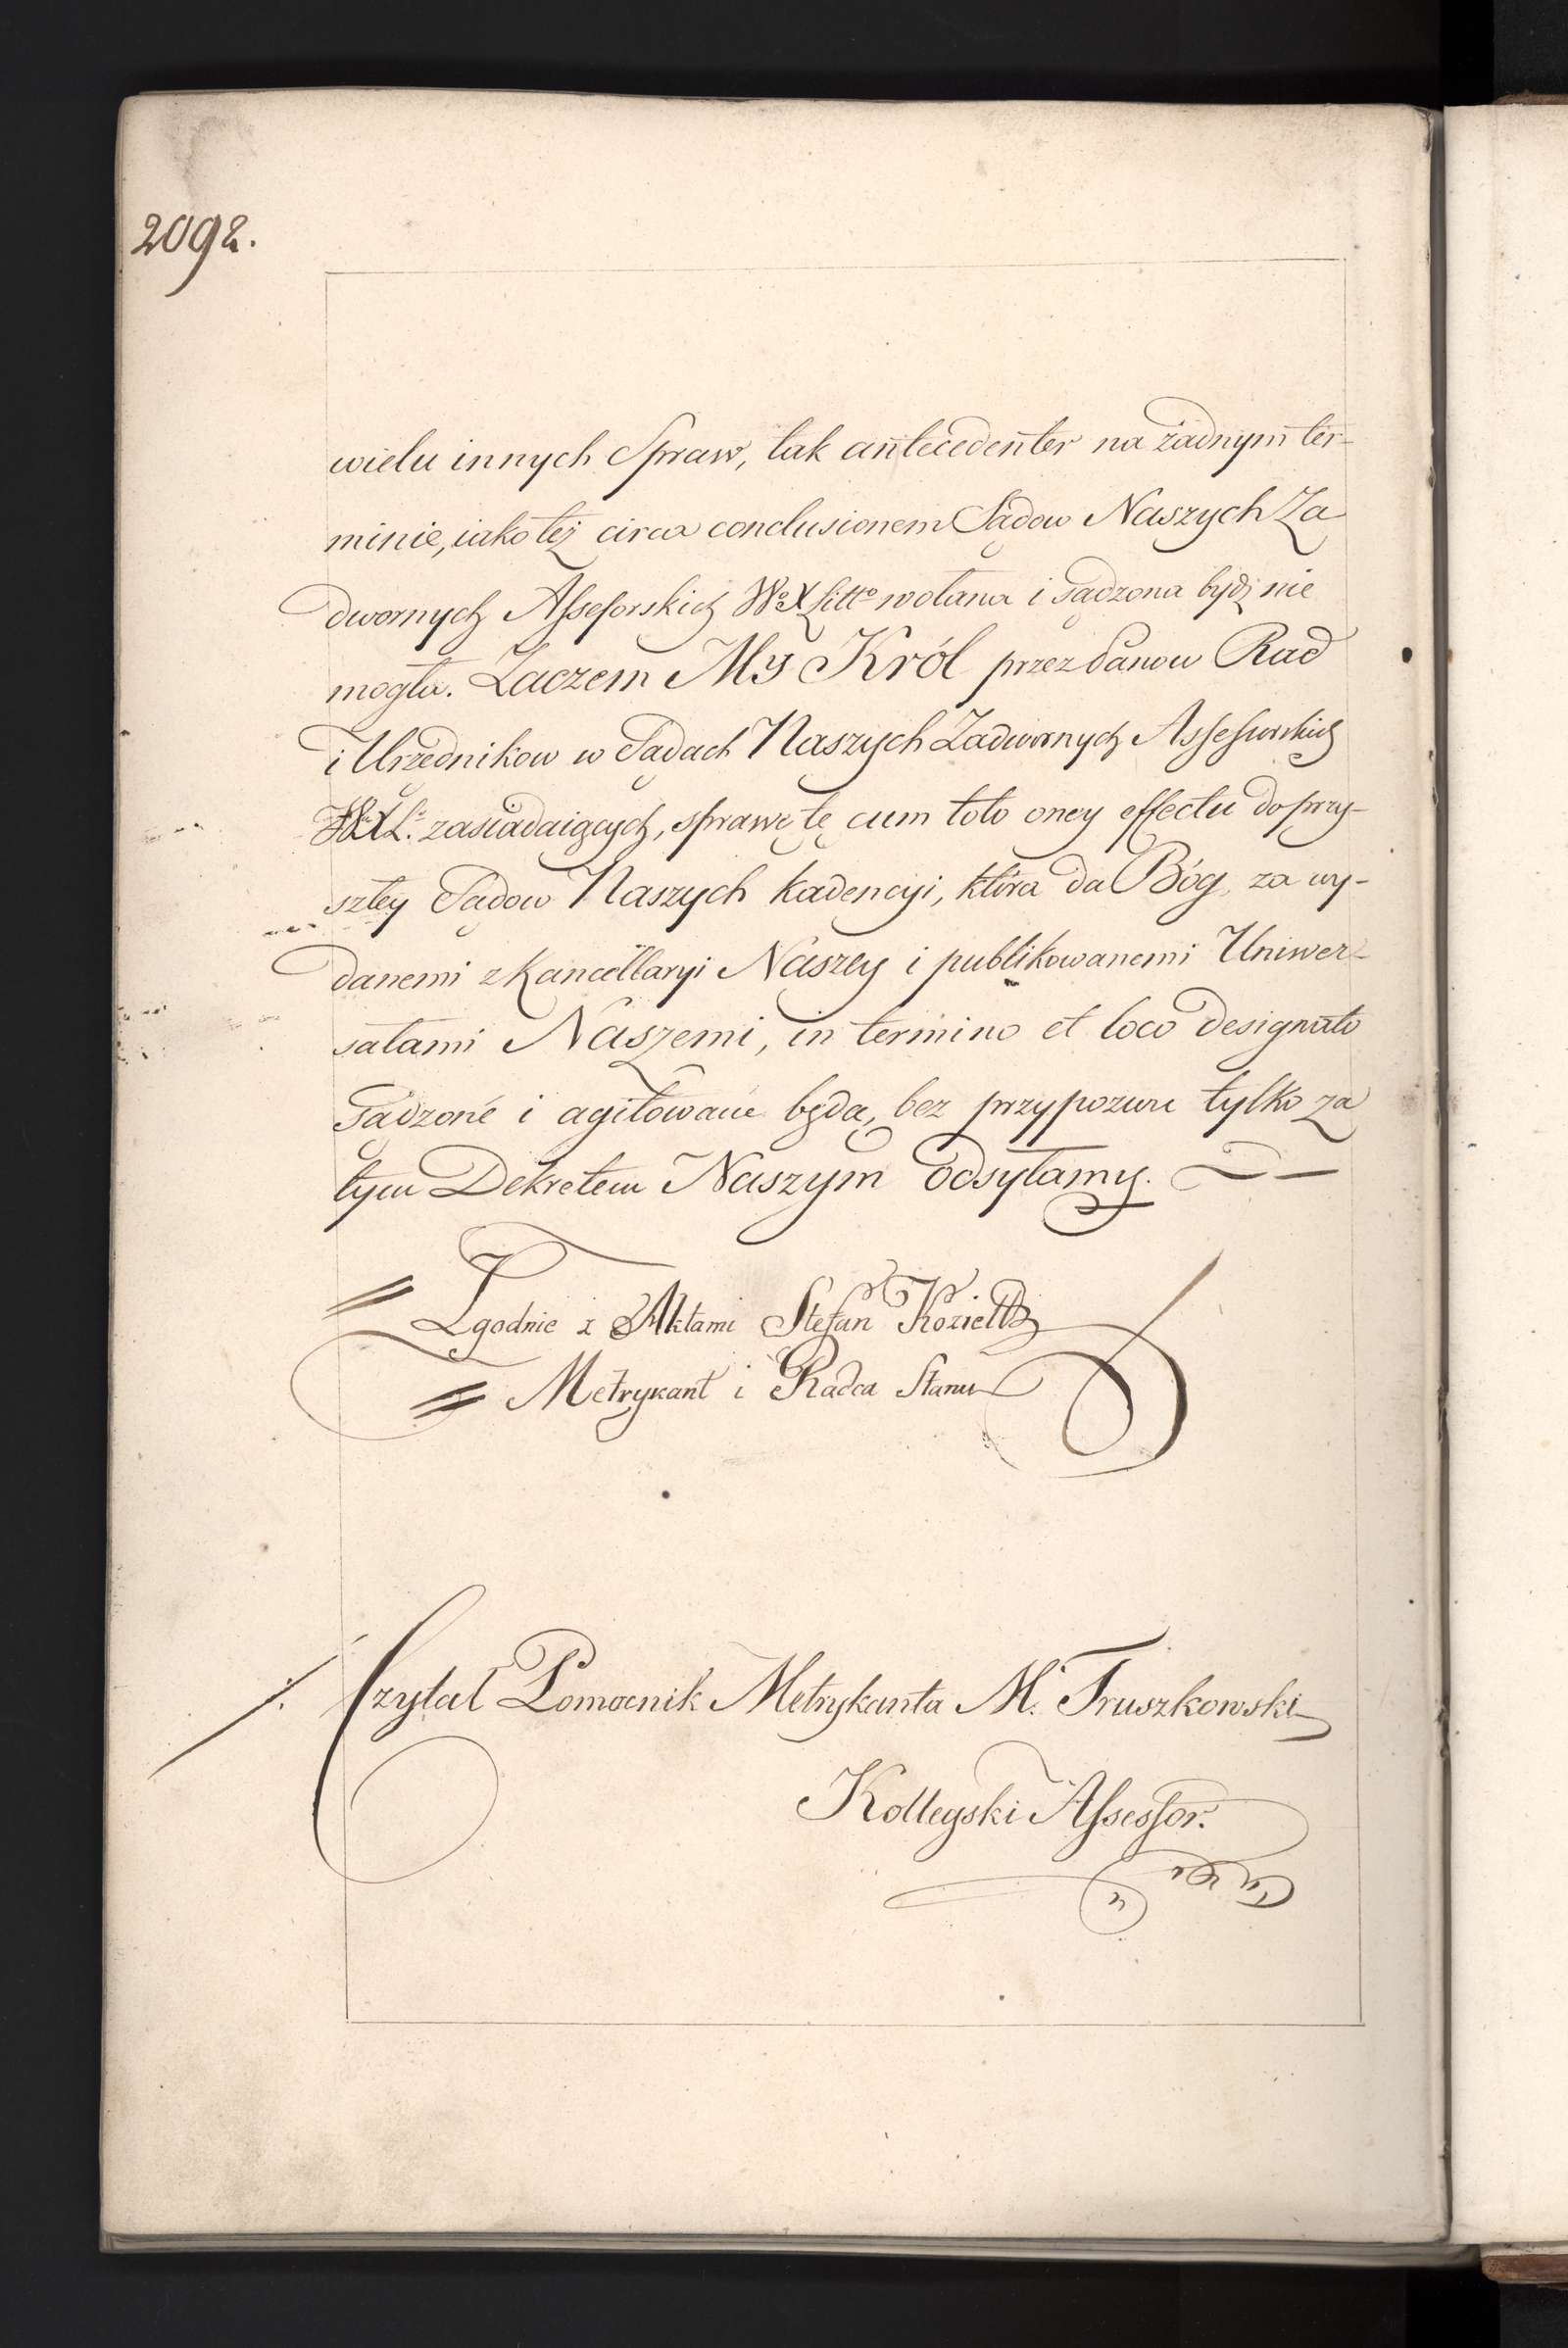 2092.
wielu innych Spraw, tak antecedenter na żadnym ter-
minie, iako też circa conclusionem Sądow Naszych Za
dwornych Assesorskich Wo X Litto wołana i sądzona bydź nie
mogła. Zaczem My Król przez Panow Rad
i Urzędnikow w Sądach Naszych Zadwornych Assessorskich
W. X. L. zasiadaiących, sprawę tę cum toto oney effectu do przy-
szłey Sądow Naszych kadencyi, ktora da Bóg, za wy-
danemi z Kancellaryi Naszey i publikowanemi Uniwer-
sałami Naszemi, in termino et loco designato
Sądzone i agitowane będą, bez przypozwu tylko za
tym Dekretem Naszym odsyłamy.
Zgodnie z Aktami Stefan Koziełł
Metrykant i Radca Stanu
Czytał Pomocnik Metrykanta M. Truszkowski
Kollegski Assessor.